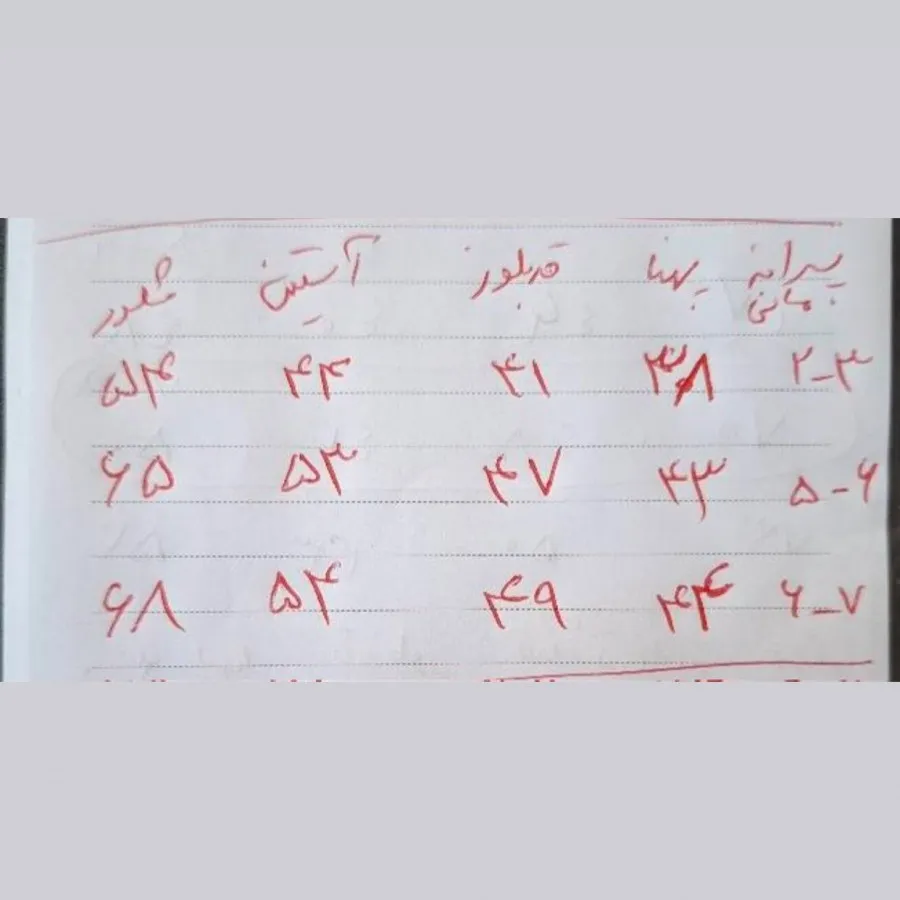 پسرانه پهنا قد بلوز آستین شلور
۲-۳ ۳۸ ۴۱ ۴۳ ۵۴
۵-۶ ۴۳ ۴۷ ۵۳ ۶۵
۶-۷ ۴۴ ۴۹ ۵۴ ۶۸